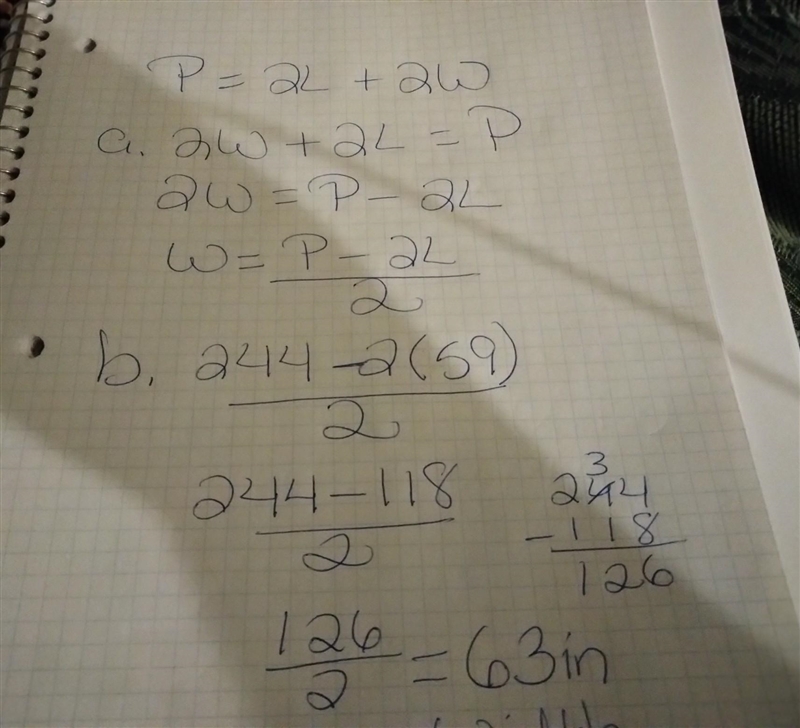 P = 2L + 2W
a. 2W + 2L = P
2W = P - 2L
W = P - 2L
2
b. 244 - 2(59)
2
244 - 118
2
3
244
- 118
126
126
2 = 63in